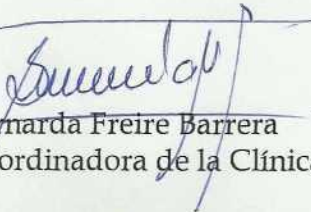 narda Freire Barrera
ordinadora de la Clínica